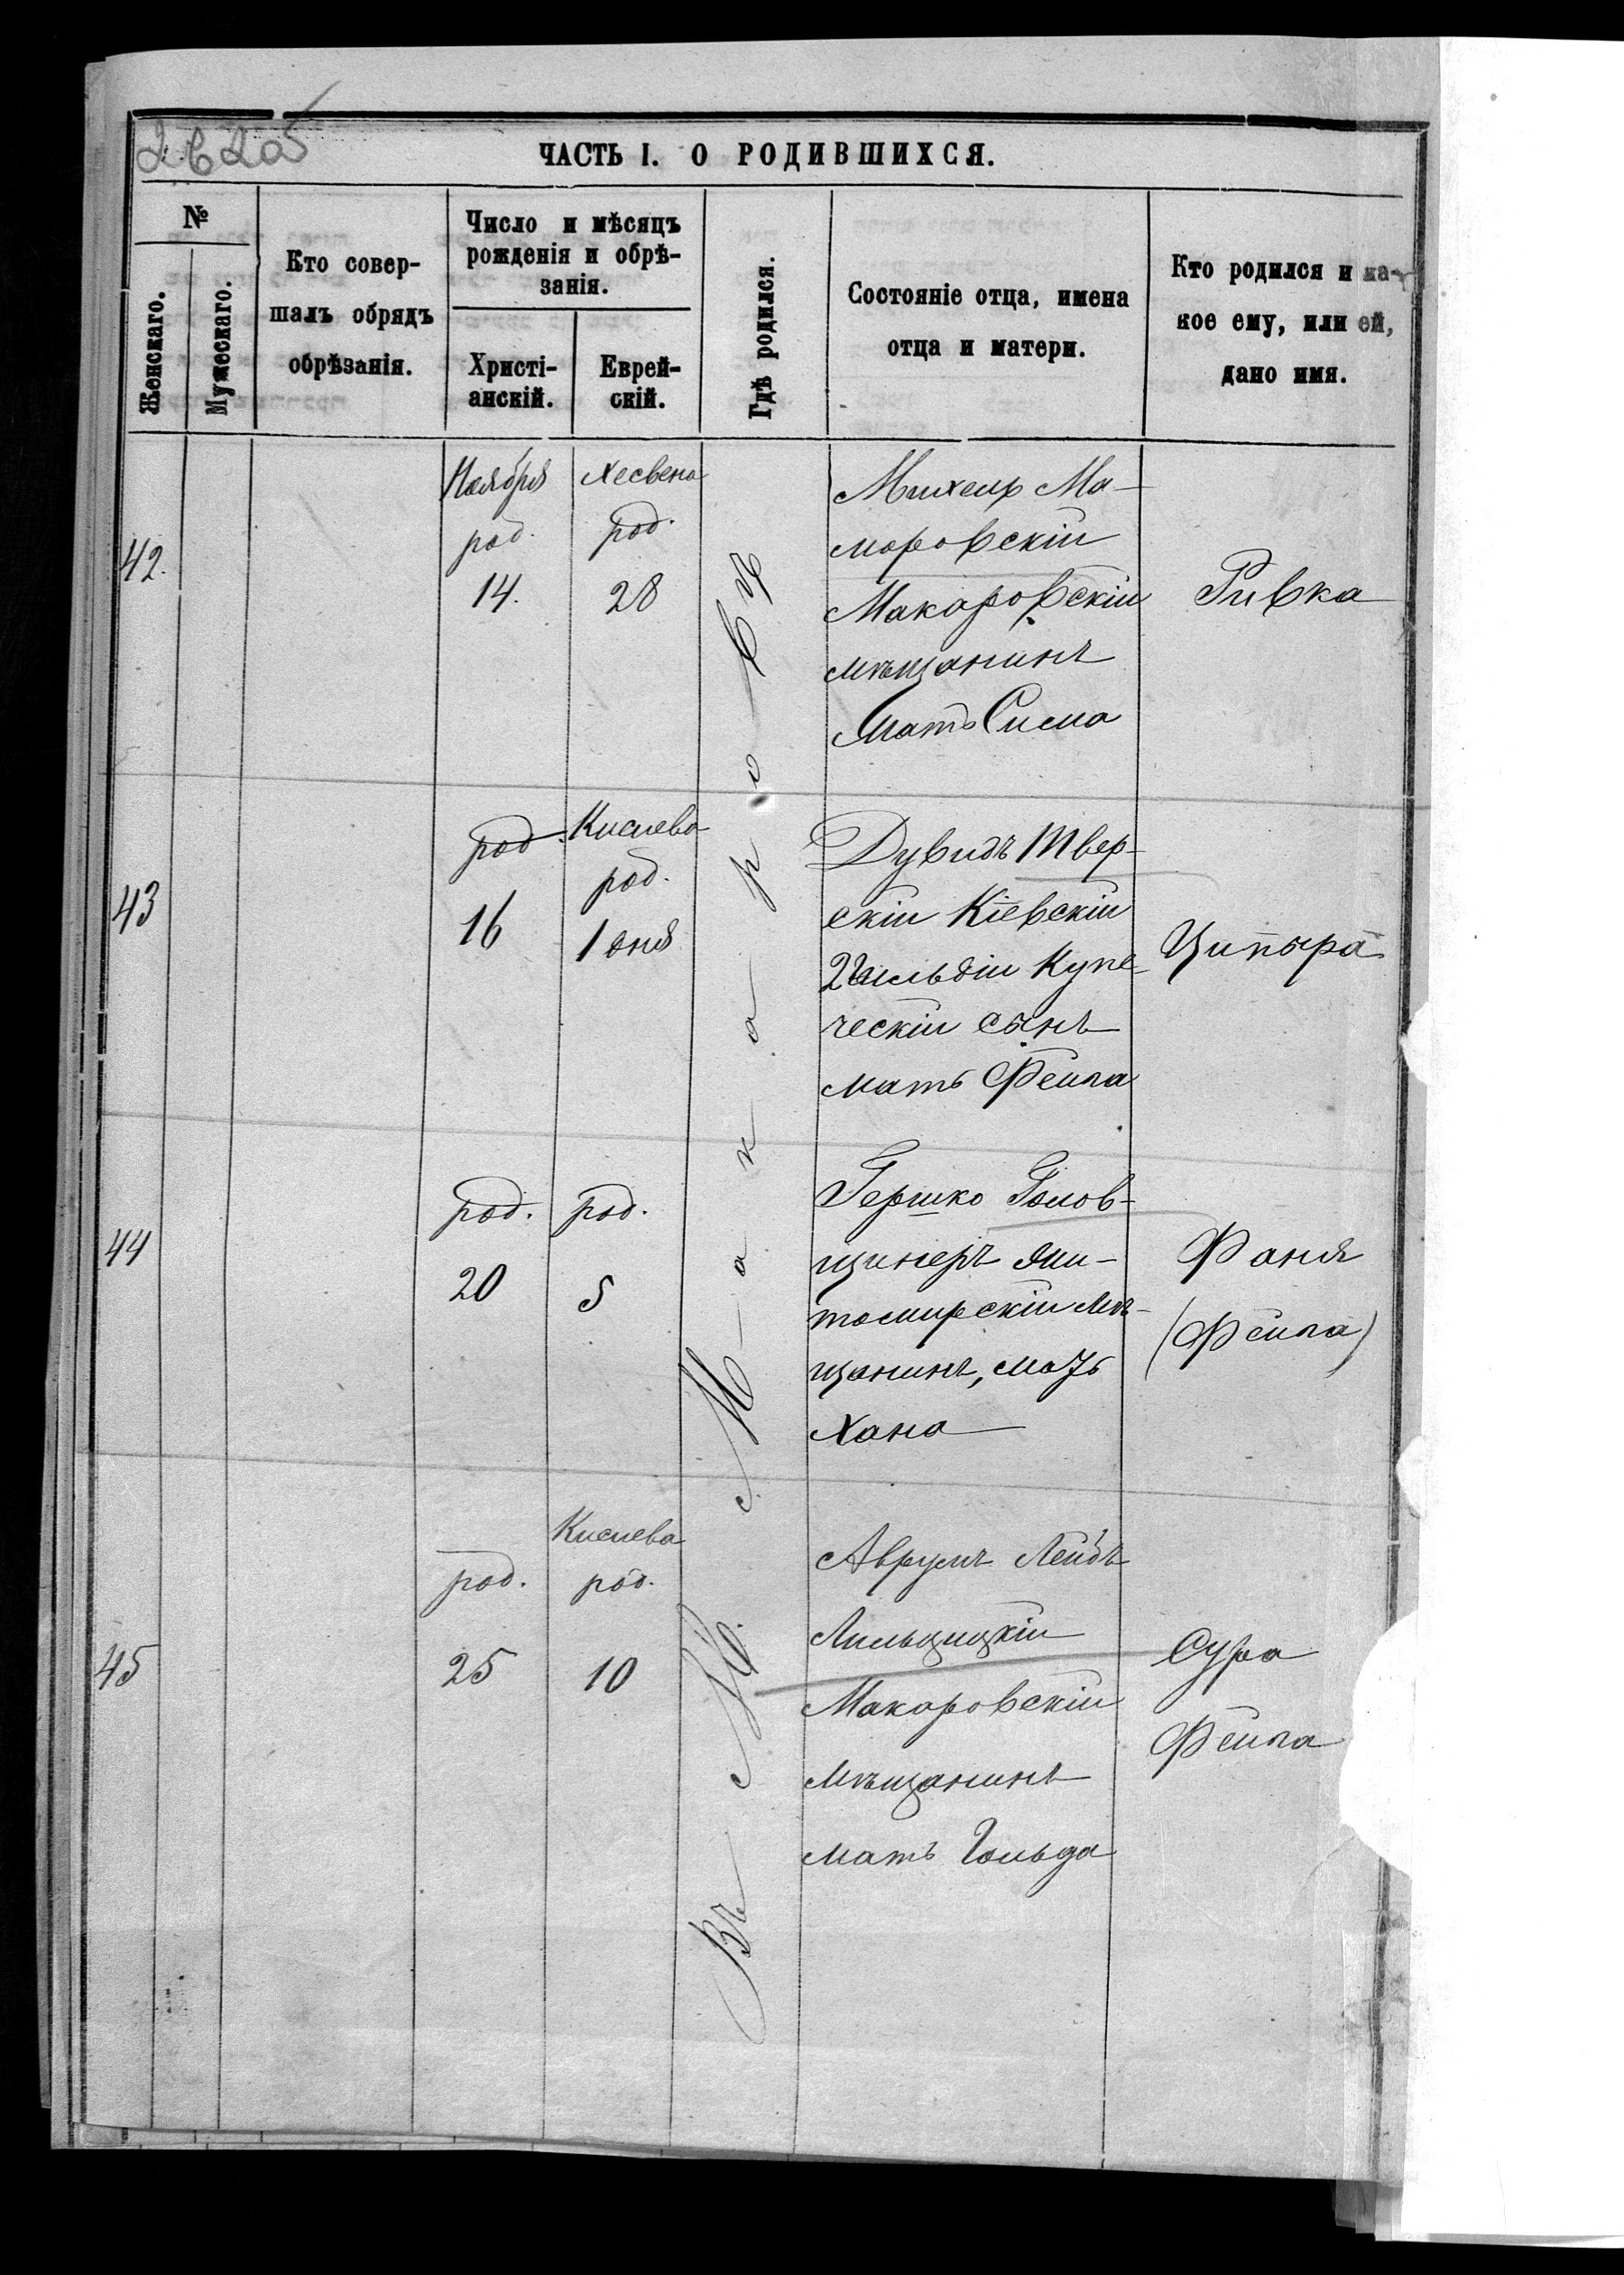 ЧАСТЬ I. О РОДИВШИХСЯ.
№
Женскаго.
Мужескаго.
Кто совер-
шалъ обрядъ
обрѣзанія.
Число и мѣсяцъ
рожденія и обрѣ-
занія.
Христі-
анскій.
Еврей-
скій.
Гдѣ родился.
Состояніе отца, имена
отца и матери.
Кто родился и ка-
кое ему, или ей,
дано имя.
Въ М. Макаровѣ
42.
Ноября
род.
14.
Хесвена
род.
28
Михель Ма-
моровскій
Макаровскій
мѣщанинъ
Мать Сима
Ривка
43
род.
16
Кислева
род.
1 дня
Дувидъ Твер-
скій Кіевскій
2 Гильдіи Купе-
ческій сынъ
мать Фейга
Ципора
44
род.
20
род.
5
Гершко Голов-
щинеръ Жи-
томирскій Мѣ-
щанинъ, мать
Хана
Фаня
(Фейга)
45
род.
25
Кислева
род.
10
Аврумъ Лейбъ
Макаровскій
Мѣщанинъ
мать Гольда
Сура
Фейга